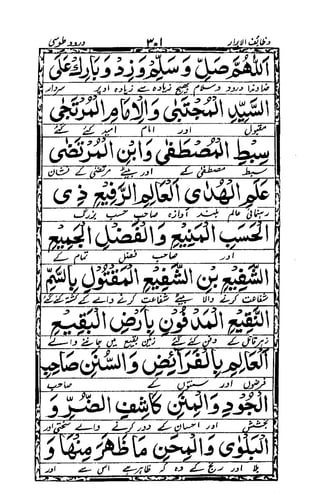 وظائف الابرار ۳۰۱ درود طوسی
اَللّٰهُمَّ صَلِّ وَ سَلِّمْ وَ زِدْ وَ بَارِكْ عَلَى
خداوندا درود و سلام بھیج زیادہ سے زیادہ اوپر سردار
السَّيِّدِ الْمُجْتَبٰى وَالْاِمَامِ الْمُرْتَجٰى
مقبول اور امام امید کئے گئے
سِبْطِ الْمُصْطَفٰى وَابْنِ الْمُرْتَضٰى
سبط مصطفٰی کے اور بیٹے مرتضٰی کے نشان
عَلَمِ الْهُدٰى الْعَالِمِ الرَّفِيْعِ ذِى
رہنمائی عالم بلند آوازہ صاحب حسب بزرگ
الْحَسَبِ الْمَنِيْعِ وَالْفَضْلِ الْجَمِيْعِ
اور صاحب فضل تمام کے
الشَّفِيْعِ بْنِ الشَّفِيْعِ الْمَقْتُوْلِ بِالسَّمِّ
شفاعت کرنے والا بیٹے شفاعت کرنے والے کے کشتہ کئے گئے
النَّقِيْعِ الْمَدْفُوْنِ بِاَرْضِ الْبَقِيْعِ
زہر قاتل کے دفن کئے گئے زمین بقیع میں جاننے والے
الْعَالِمِ بِالْفَرَائِضِ وَالسُّنَنِ صَاحِبِ
فرضوں اور سنتوں کے صاحب
الْجُوْدِ وَالْمِنَنِ كَاشِفِ الضُّرِّ وَ
بخشش اور احسان کے دور کرنے والے سختی اور
الْبَلْوٰى وَالْمِحَنِ مَا ظَهَرَ مِنْهَا وَ
بلا اور رنج کے وہ کہ ظاہر ہے اس سے اور